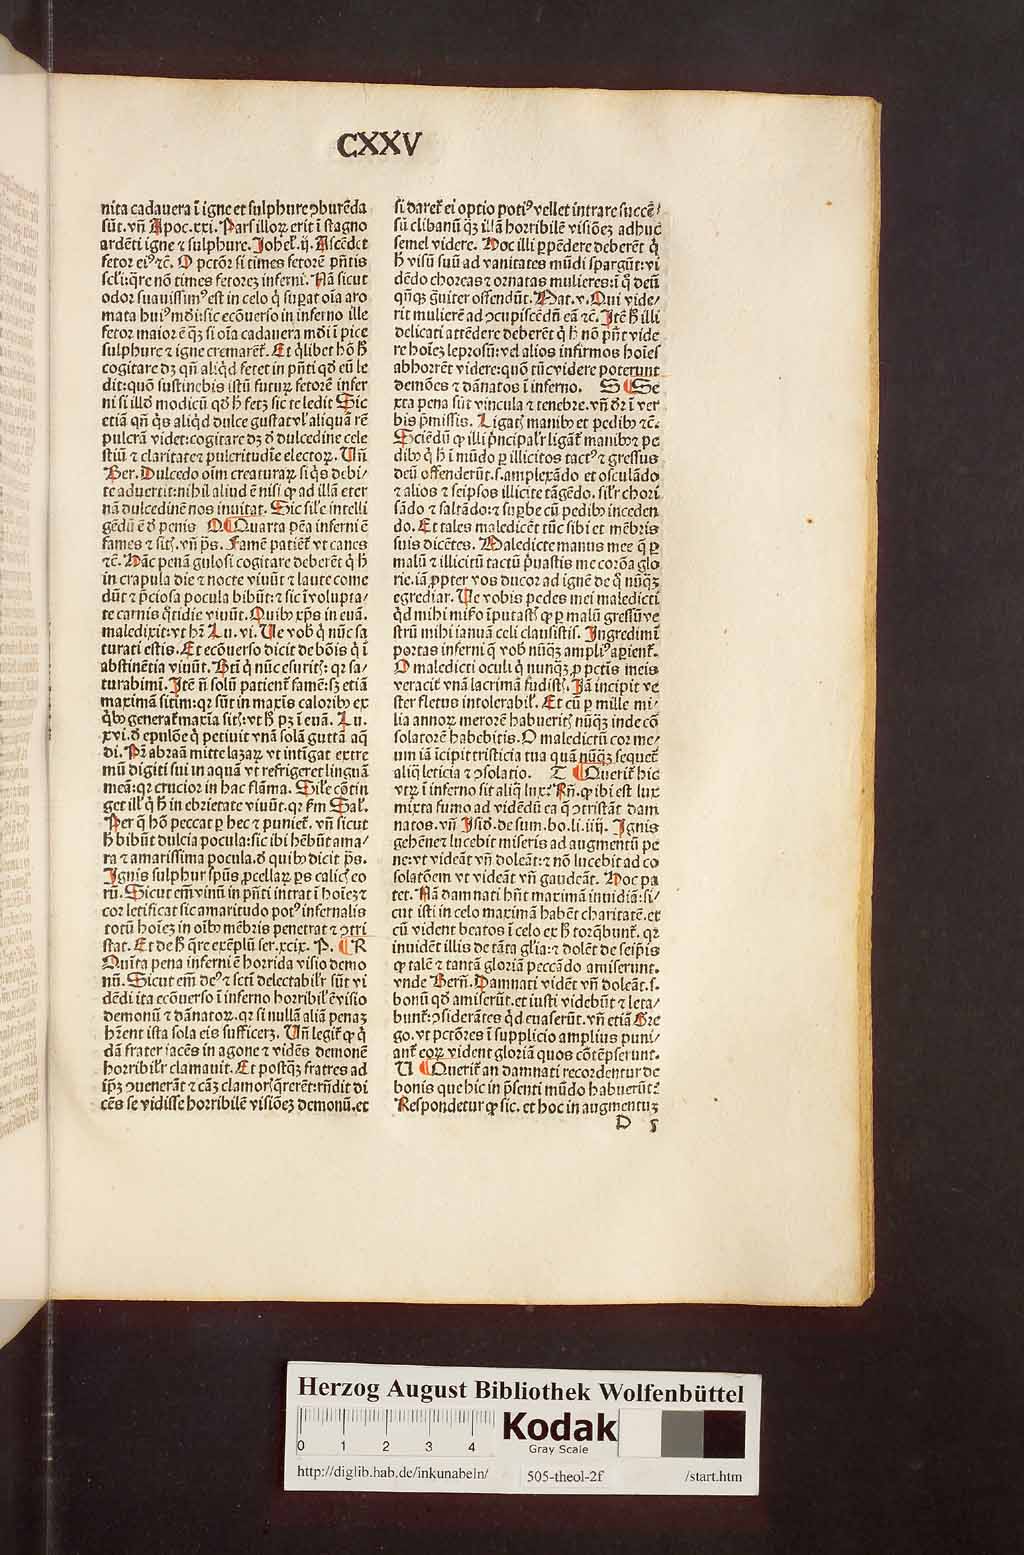 CXXV
nita cadauera ī igne et sulphure ꝯburēda
sūt. vñ Apoc. xxi. Pars illoꝝ erit ī stagno
ardēti igne ⁊ sulphure. Johel̉. ij. Ascēdet
fetor eiꝰ ⁊c̄. O pctōr si times fetorē p̄ntis
scl̓i: q̄re nō times fetoreꝫ inferni. Nā sicut
odor suauissimꝰ est in celo q̇ suꝑat oīa aro
mata huiꝰ mūdi: sic ecōuerso in inferno ille
fetor maior ē q̄ꝫ si oīa cadauera mūdi ī pice
sulphure ⁊ igne cremarēt̉. Et q̇libet hō h̄
cogitare dꝫ qn̄ aliq̇d fetet in p̄nti qd̓ eū le
dit: quō sustinebis istū futuꝝ fetorē infer
ni si illd̓ modicū qd̓ h̄ fetꝫ sic te ledit Sic
etiā qn̄ q̇s aliq̇d dulce gustat vl̓ aliquā rē
pulcrā videt: cogitare dꝫ d̓ dulcedine cele
stiū ⁊ claritate ⁊ pulcritudīe electoꝝ. Vn̄
Ber. Dulcedo oīm creaturaꝝ si q̇s debi/
te aduertit: nihil aliud ē nisi ꝙ ad illā eter
nā dulcedinē nos inuitat. Sic sil̓e intelli
gēdū ē d̓ penis Q ¶ Quarta pēa inferni ē
fames ⁊ sitꝭ. vn̄ p̄s. Famē patiēt̉ vt canes
⁊c̄. Hāc penā gulosi cogitare deberēt q̇ h̄
in crapula die ⁊ nocte viuūt ⁊ laute come
dūt ⁊ p̄ciosa pocula bibūt: ⁊ sic ī volupta/
te carnis q̇tidie viuūt. Quibꝰ xp̄s in euā.
maledixit: vt hr̄ Lu. vi. Ve vob̓ q̇ nūc sa
turati estis. Et ecōuerso dicit de bōis q̇ ī
abstinētia viuūt. Bt̄i q̇ nūc esuritꝭ: qꝛ sa/
turabimī. Itē n̄ solū patient̉ famē: sꝫ etiā
maximā sitim: qꝛ sūt in maxīs caloribꝰ ex
q̇bꝰ generat̉ maxīa sitꝭ: vt h̄ pꝫ ī euā. Lu.
xvi. d̓ epulōe q̇ petiuit vnā solā guttā aq̄
di. Pr̄ abraā mitte lazaꝝ vt intīgat extre
mū digiti sui in aquā vt refrigeret linguā
meā: qꝛ crucior in hac flāma. Sil̓e cōtin
get ill̓ q̇ h̄ in ebrietate viuūt. qꝛ fm̄ Sal̓.
Per q̄ hō peccat ꝑ hec ⁊ puniet̉. vn̄ sicut
h̄ bibūt dulcia pocula: sic ibi hēbūt ama/
ra ⁊ amarissima pocula. d̓ quibꝰ dicit p̄s.
Ignis sulphur sp̄us ꝓcellaꝝ ꝑs calicꝭ eo
rū. Sicut em̄ vinū in p̄nti intrat ī hoīeꝫ ⁊
cor letificat sic amaritudo potꝰ infernalis
totū hoīez in oībꝰ mēbris penetrat ⁊ ꝯtri
stat. Et de h̄ q̄re exēplū ser. xcix. P. ¶ R
Quīta pena inferni ē horrida visio demo
nū. Sicut em̄ deꝰ ⁊ sctī delectabil̓r sūt vi
dēdi ita ecōuerso ī inferno horribil̓ ē visio
demonū ⁊ dānatoꝝ. qꝛ si nullā aliā penaꝫ
hr̄ent ista sola eis sufficerꝫ. Vn̄ legit̉ ꝙ q̇
dā frater iacēs in agone ⁊ vidēs demonē
horribil̓r clamauit. Et postq̄ꝫ fratres ad
ip̄ꝫ ꝯuenerāt ⁊ cāꝫ clamorꝭ q̄rerēt: rn̄dit di
cēs se vidisse horribilē visiōeꝫ demonū. et
si daret̉ ei optio potiꝰ vellet intrare succē/
sū clibanū q̄ꝫ illā horribilē visiōeꝫ adhuc
semel videre. Hoc illi ꝑpēdere deberēt q̇
h̄ visū suū ad vanitates mūdi spargūt: vi
dēdo choreas ⁊ ornatas mulieres: ī q̇ deū
qn̄qꝫ g̓uiter offendūt. Mat. v. Qui vide/
rit mulierē ad ꝯcupiscēdū eā ⁊c̄. Itē h̄ illi
delicati attēdere deberēt q̇ h̄ nō pn̄t vide
re hoīeꝫ leprosū: vel alios infirmos hoīes
abhorrēt videre: quō tūc videre poterunt
demōes ⁊ dānatos ī inferno. S ¶ Se
xta pena sūt vincula ⁊ tenebre. vn̄ dr̄ ī ver
bis p̄missis. Ligatꝭ manibꝰ et pedibꝰ ⁊c̄.
Sciēdū ꝙ illi p̄ncipal̓r ligāt̉ manibꝰ ⁊ pe
dibꝰ q̇ h̄ ī mūdo ꝑ illicitos tactꝰ ⁊ gressus
deū offenderūt. s. amplexādo et osculādo
⁊ alios ⁊ seipsos illicite tāgēdo. sil̓r chori
sādo ⁊ saltādo: ⁊ suꝑbe cū pedibꝰ inceden
do. Et tales maledicēt tūc sibi et mēbris
suis dicētes. Maledicte manus mee q̄ ꝑ
malū ⁊ illicitū tactū p̓uastis me corōa glo
rie. iā ꝓpter vos ducor ad ignē de q̇ nūq̄ꝫ
egrediar. Ve vobis pedes mei maledicti
q̇d mihi miẜo īputastꝭ ꝙ ꝑ malū gressū ve
strū mihi ianuā celi clausistis. Ingredimī
portas inferni q̄ vob̓ nūq̄ꝫ ampliꝰ aꝑient̉.
O maledicti oculi q̇ nunq̄ꝫ ꝓ pctīs meis
veracit̉ vnā lacrimā fudistꝭ. Iā incipit ve
ster fletus intolerabil̓. Et cū ꝑ mille mi/
lia annoꝝ merorē habueritꝭ nūq̄ꝫ inde cō
solatorē habebitis. O maledictū cor me/
um iā īcipit tristicia tua quā nūq̄ꝫ sequet̉
aliq̄ leticia ⁊ ꝯsolatio. T ¶ Querit̉ hic
vtꝝ ī inferno sit aliq̄ lux: Rn̄. ꝙ ibi est lux
mixta fumo ad vidēdū ea q̄ ꝯtristāt dam
natos. vn̄ Isid̓. de sum. bo. li. iiij. Ignis
gehēne lucebit miseris ad augmentū pe
ne: vt videāt vn̄ doleāt: ⁊ nō lucebit ad cō
solatōem vt videāt vn̄ gaudeāt. Hoc pa
tet. Nā damnati hn̄t maximā inuidiā: si/
cut isti in celo maximā habēt charitatē. et
cū vident beatos ī celo ex h̄ torq̄bunt̉. qꝛ
inuidēt illis de tāta gl̓ia: ⁊ dolēt de seip̄is
ꝙ talē ⁊ tantā gloriā peccādo amiserunt.
vnde Bern̄. Damnati vidēt vn̄ doleāt. s.
bonū qd̓ amiserūt. et iusti videbūt ⁊ leta/
bunt̉: ꝯsiderātes q̇d euaserūt. vn̄ etiā Gre
go. vt pctōres ī supplicio amplius puni/
ant̉ eoꝝ vident gloriā quos cōtēpserunt.
U ¶ Querit̉ an damnati recordentur de
bonis que hic in p̄senti mūdo habuerūt:
Respondetur ꝙ sic. et hoc in augmentuꝫ
D 5
Herzog August Bibliothek Wolfenbüttel
0 1 2 3 4
Kodak
Gray Scale
http://diglib.hab.de/inkunabeln/ 505-theol-2f /start.htm